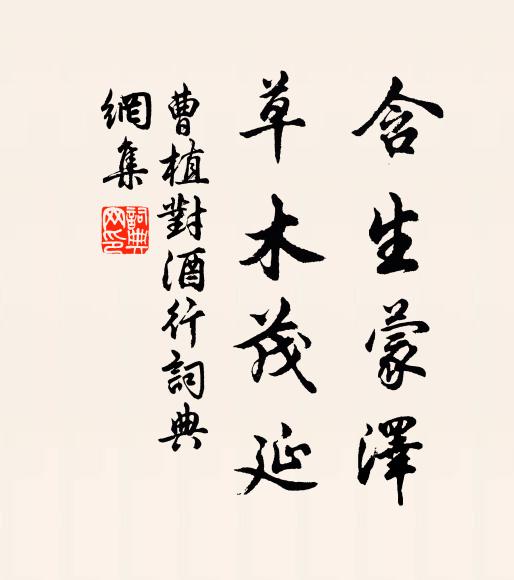 含生蒙澤
草木茂延
曹植對酒行詞典
網集
詞典
网印